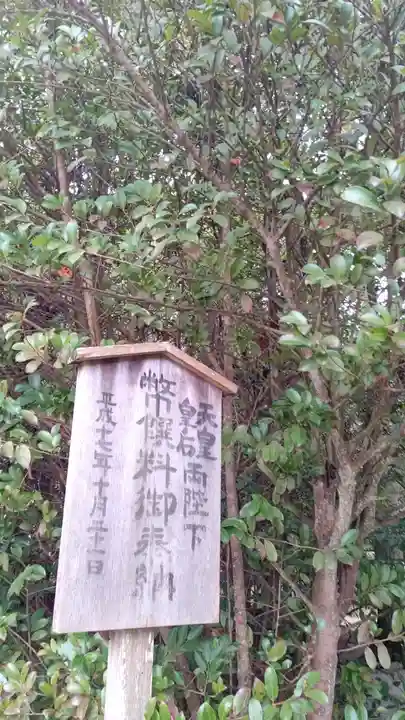 天皇
皇后両陛下
幣饌料御奉納
平成十七年十月三十一日